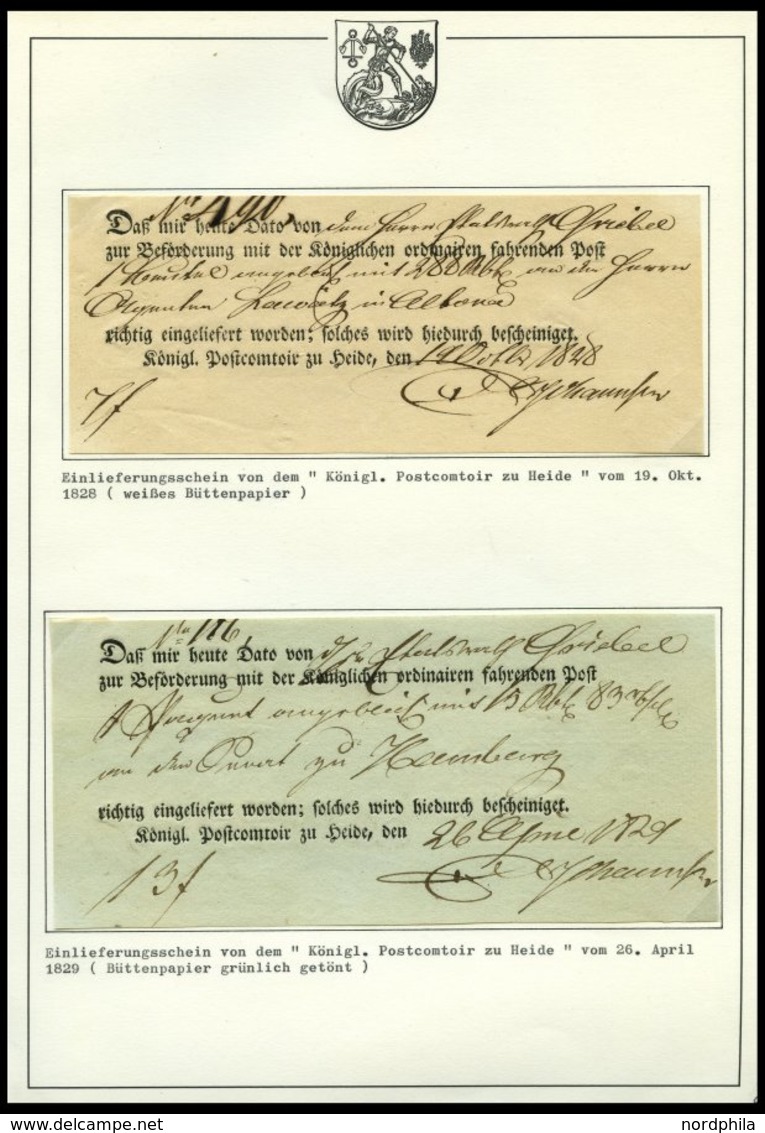 Daß mir heute Dato von dem Herrn Griebel
zur Beförderung mit der Königlichen ordinairen fahrenden Post
1 Beutel angeblich mit 288 Rbt an den Herrn
Agenten in Altona
richtig eingeliefert worden; solches wird hiedurch bescheiniget.
Königl. Postcomtoir zu Heide, den 19 Octb 1828
Johannsen
Einlieferungsschein von dem " Königl. Postcomtoir zu Heide " vom 19. Okt.
1828 ( weißes Büttenpapier )
No 116
Daß mir heute Dato von Griebel
zur Beförderung mit der Königlichen ordinairen fahrenden Post
angeblich mit 15 Rbt 83
an den zu Hamburg
richtig eingeliefert worden; solches wird hiedurch bescheiniget.
Königl. Postcomtoir zu Heide, den 26 April 1829
Johannsen
Einlieferungsschein von dem " Königl. Postcomtoir zu Heide " vom 26. April
1829 ( Büttenpapier grünlich getönt )
nordphila